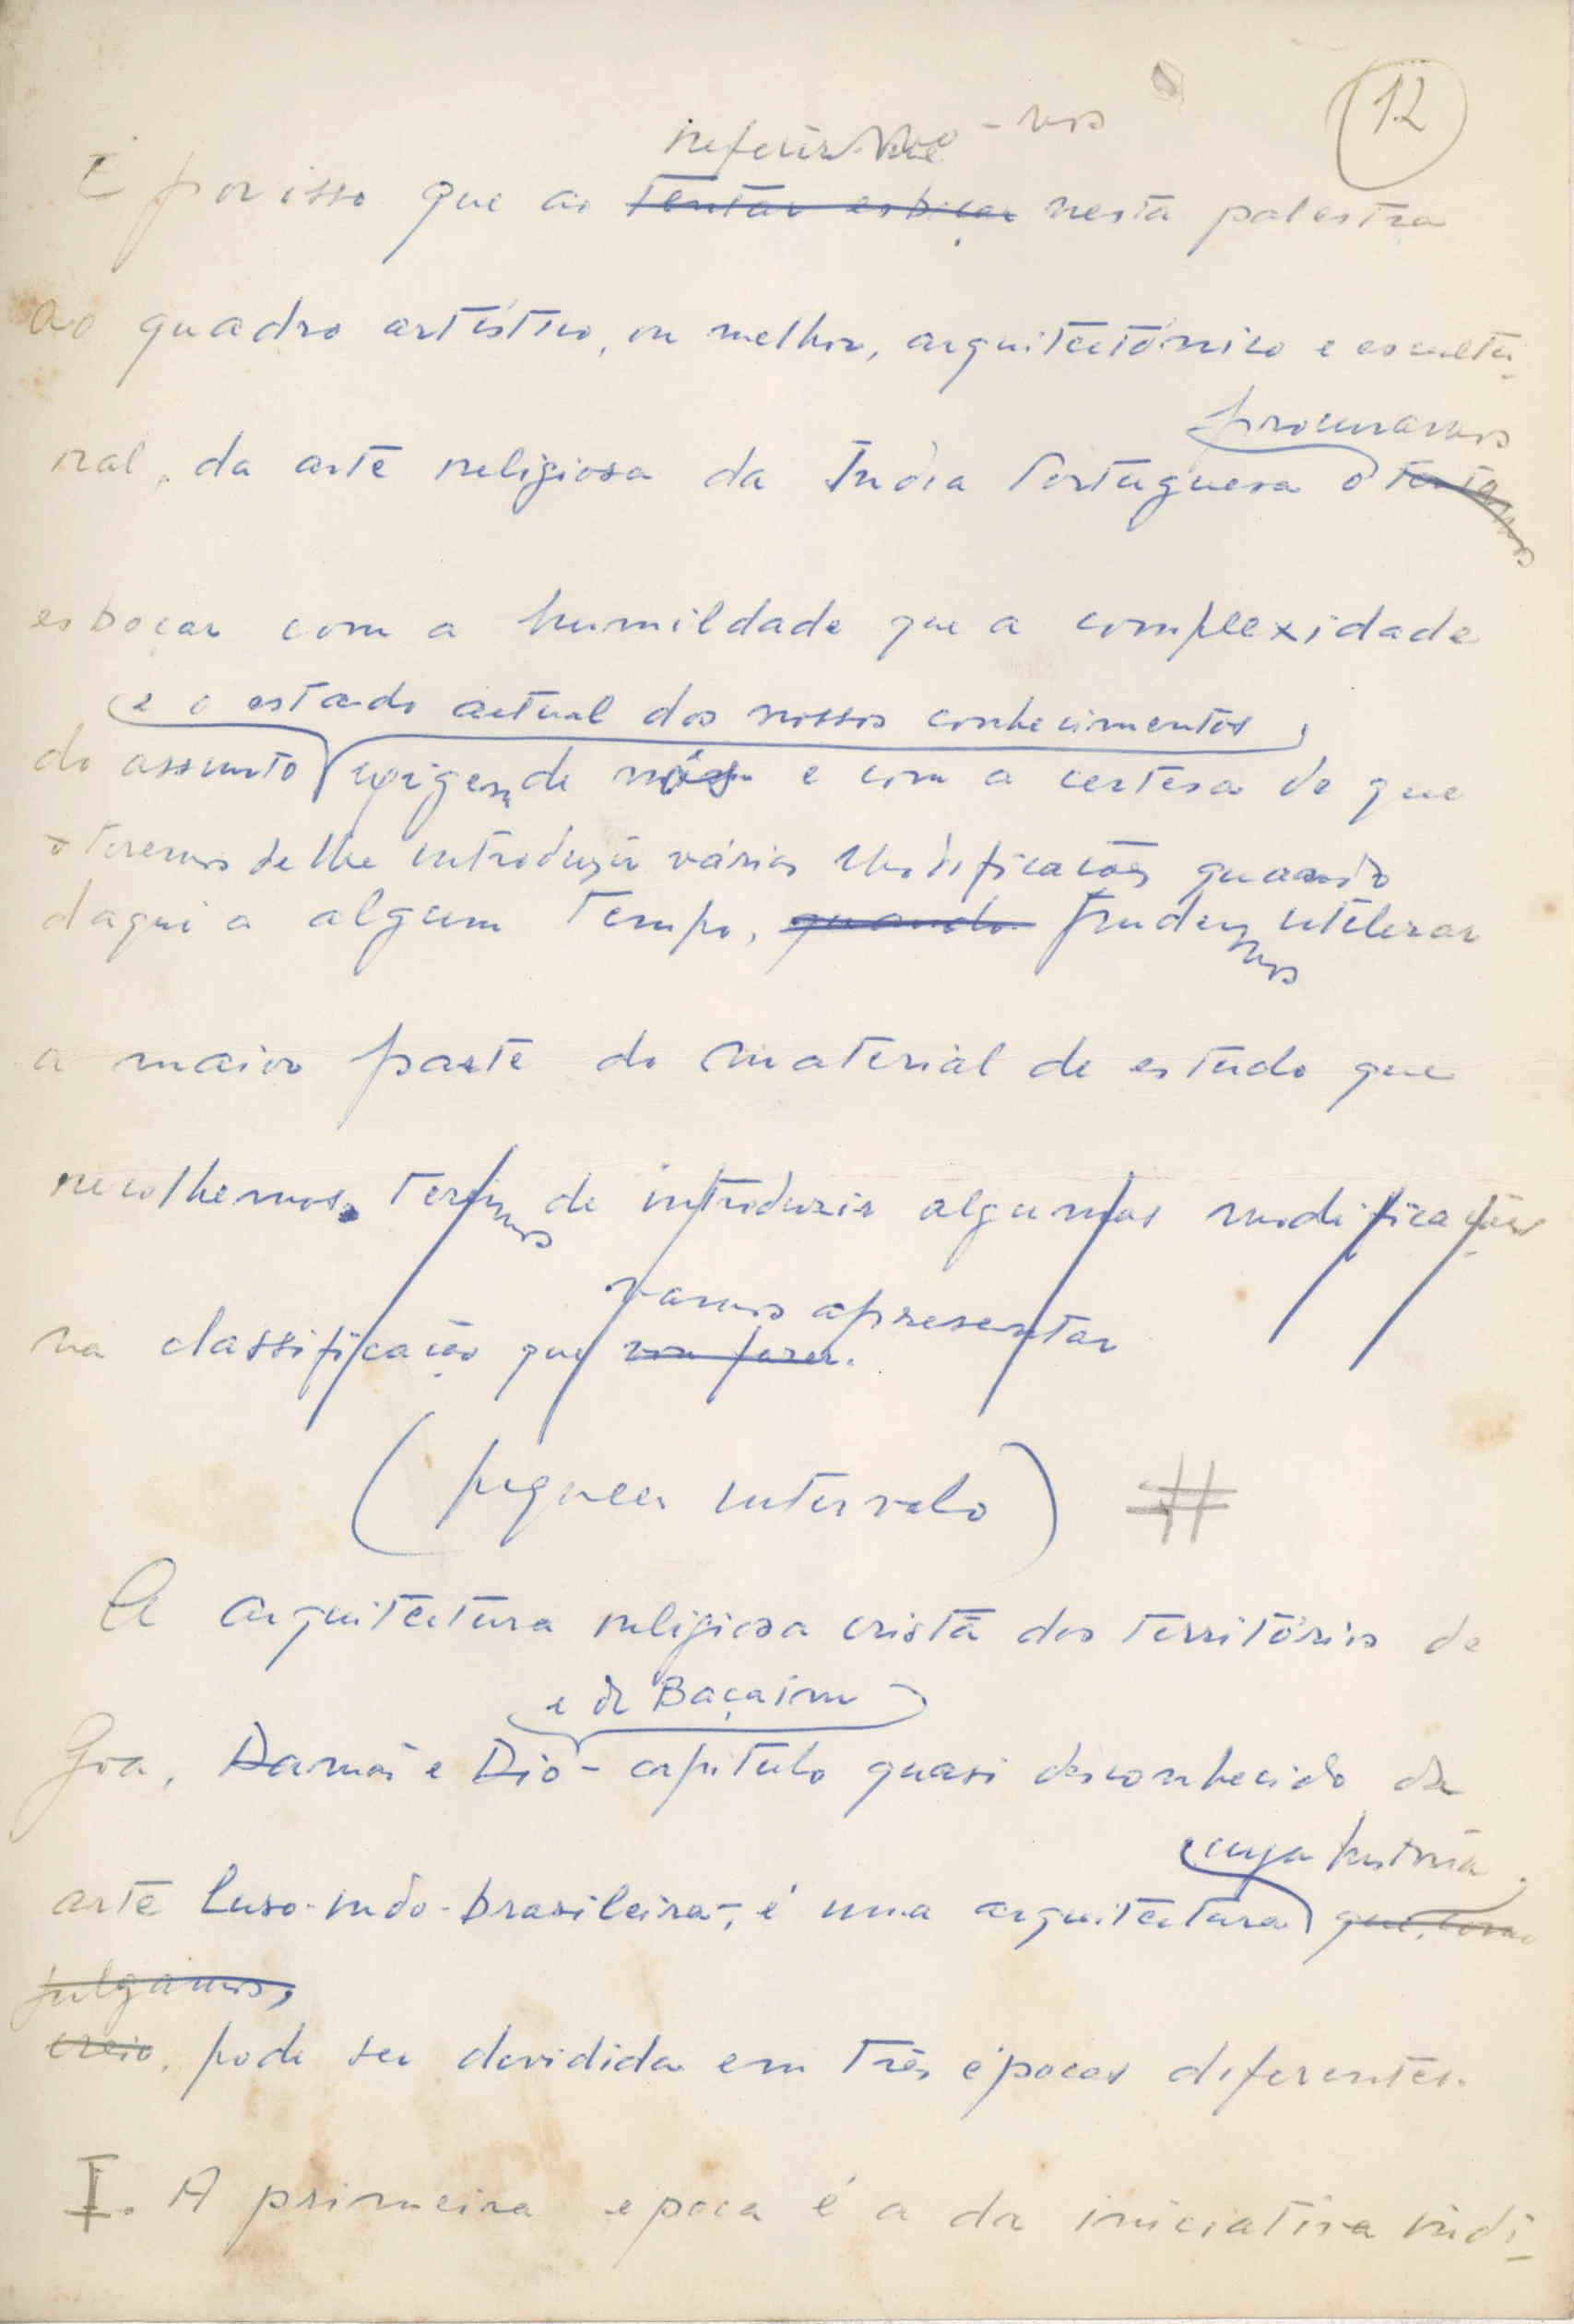 12
referir-mo-nos
É por isso que ao tentar esboçar nesta palestra
ao quadro artístico, ou melhor, arquitectónico e escultu-
ral, da arte religiosa da India Portuguesa o tentamos
procuramos
esboçar com a humildade que a complexidade
e o estado actual dos nossos conhecimentos
do assunto exigem de nós e com a certesa de que
teremos de lhe introduzir várias modificações quando
daqui a algum tempo, quando pudermos utilizar
a maior parte do material de estudo que
recolhemos. teremos de introduzir algumas modificações
vamos apresentar
na classificação que vou fazer.
(pequeno intervalo) #
A arquitectura religiosa cristã dos territórios de
e de Baçaim
Goa, Damão e Dio - capitulo quasi desconhecido da
cuja história
arte luso-indo-brasileira -, é uma arquitectura que, como
julgamos,
creio, pode ser devidida em três épocas diferentes.
I. A primeira epoca é a da iniciativa indi-